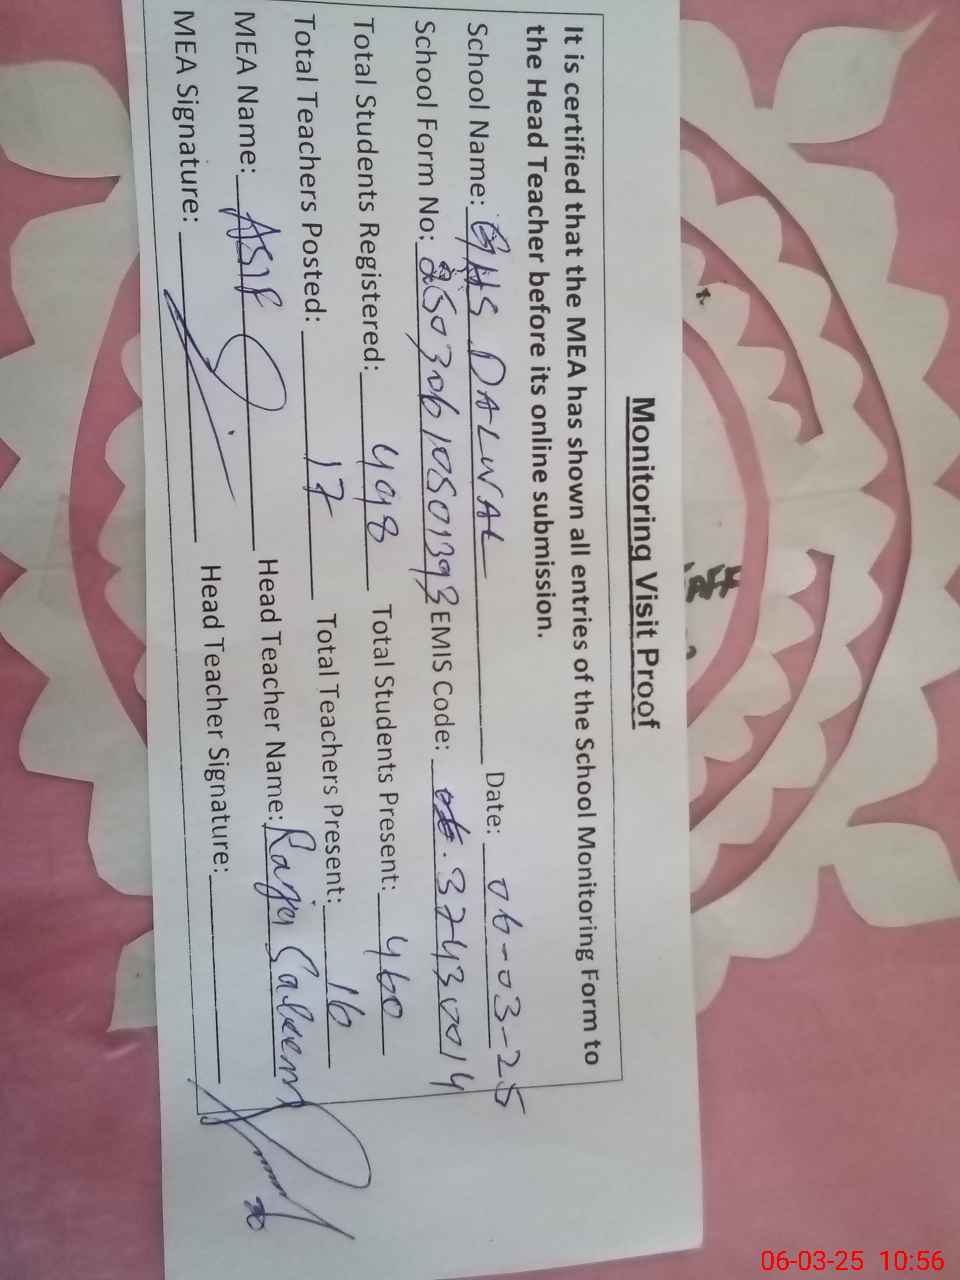 Monitoring Visit Proof
It is certified that the MEA has shown all entries of the School Monitoring Form to
the Head Teacher before its online submission.
School Name: GHS DALWAL Date: 06-03-25
School Form No: 25030610501393 EMIS Code: 37430014
Total Students Registered: 498 Total Students Present: 460
Total Teachers Posted: 17 Total Teachers Present: 16
MEA Name: ASIF Head Teacher Name: Raja Saleem
MEA Signature: Head Teacher Signature:
06-03-25 10:56